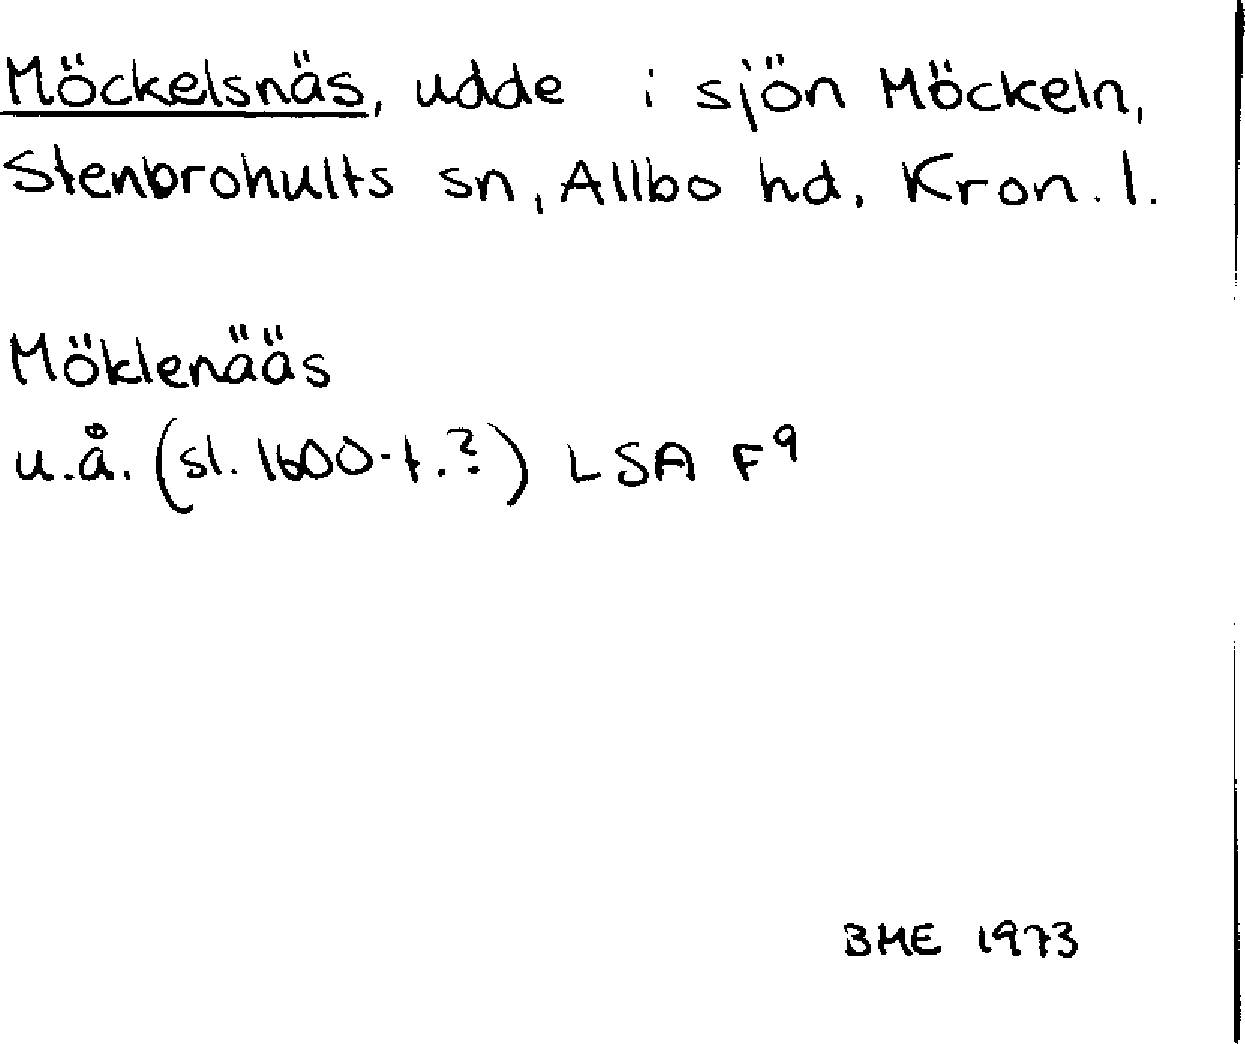 Möckelsnäs, udde i sjön Möckeln,
Stenbrohults sn, Allbo hd, Kron. l.
Möklenääs
u.å. (sl. 1600-t.?) LSA F⁹
BME 1973